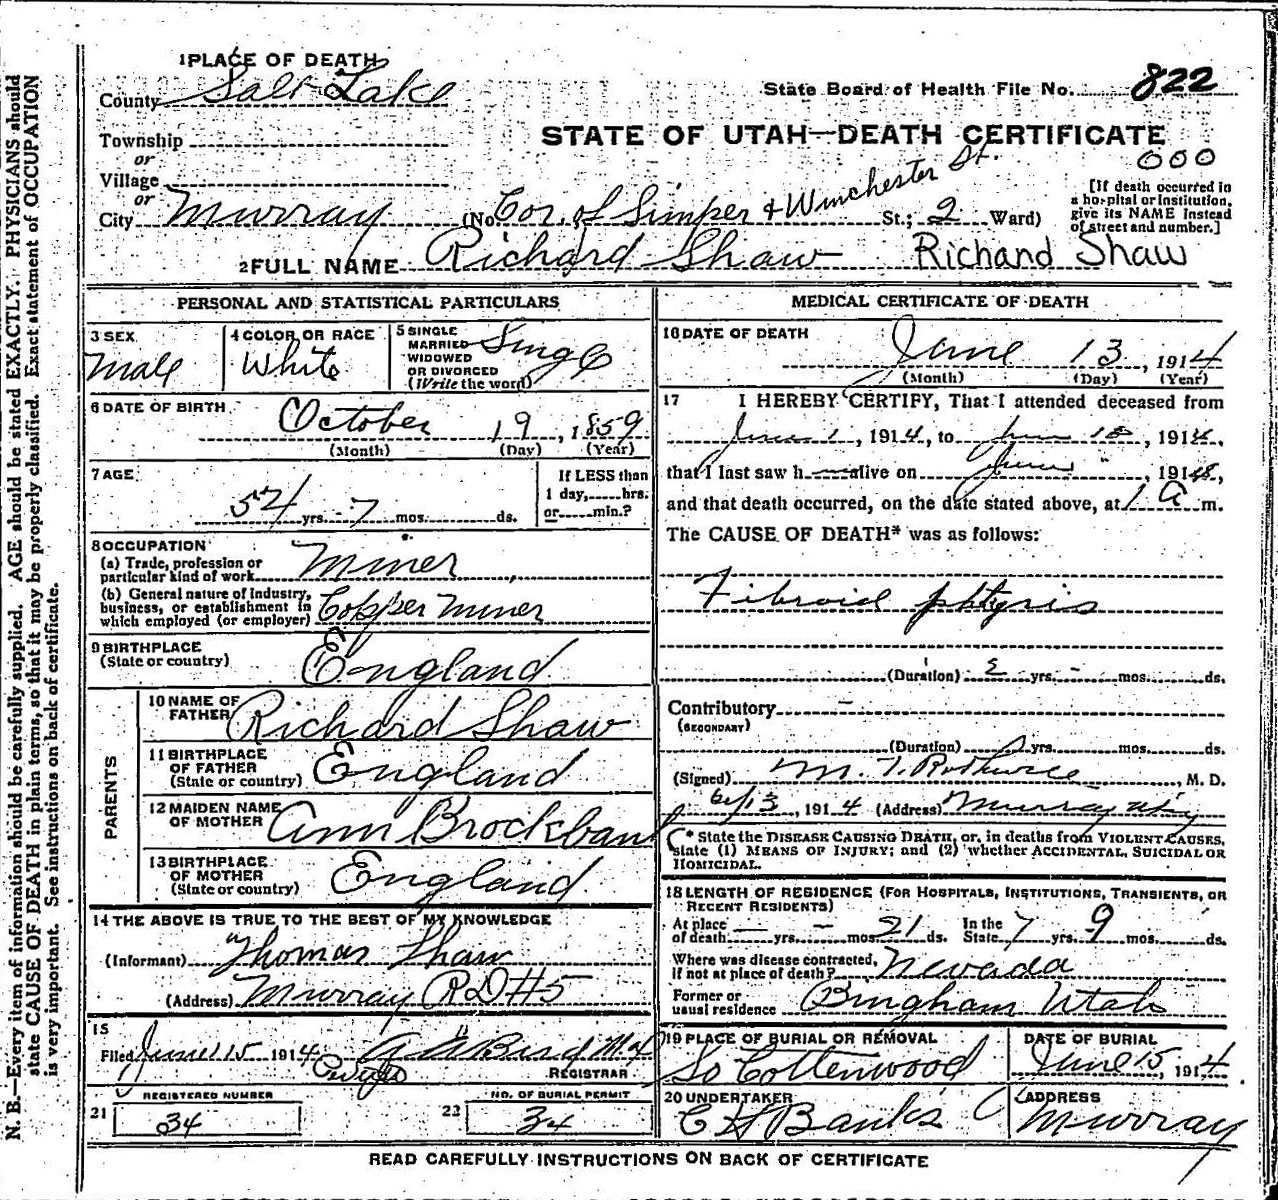 N. B.—Every item of information should be carefully supplied. AGE should be stated EXACTLY. PHYSICIANS should
state CAUSE OF DEATH in plain terms, so that it may be properly classified. Exact statement of OCCUPATION
is very important. See instructions on back of certificate.
1 PLACE OF DEATH
County Salt Lake
State Board of Health File No. 822
STATE OF UTAH—DEATH CERTIFICATE
000
Township
or
Village
or
City Murray (No. Cor. of Simper & Winchester St. St.; 2 Ward)
[If death occurred in
a hospital or institution,
give its NAME instead
of street and number.]
2 FULL NAME Richard Shaw Richard Shaw
PERSONAL AND STATISTICAL PARTICULARS
3 SEX Male
4 COLOR OR RACE White
5 SINGLE MARRIED WIDOWED OR DIVORCED (Write the word) Single
6 DATE OF BIRTH October 19, 1859
(Month) (Day) (Year)
7 AGE
54 yrs. 7 mos. ds.
If LESS than
1 day, hrs.
or min.?
8 OCCUPATION
(a) Trade, profession or
particular kind of work Miner
(b) General nature of Industry,
business, or establishment in
which employed (or employer) Copper Miner
9 BIRTHPLACE
(State or country) England
PARENTS
10 NAME OF
FATHER Richard Shaw
11 BIRTHPLACE
OF FATHER
(State or country) England
12 MAIDEN NAME
OF MOTHER Ann Brockbank
13 BIRTHPLACE
OF MOTHER
(State or country) England
14 THE ABOVE IS TRUE TO THE BEST OF MY KNOWLEDGE
(Informant) Thomas Shaw
(Address) Murray RD #5
15
Filed June 15 1914
REGISTRAR
REGISTERED NUMBER
21 34
NO. OF BURIAL PERMIT
22 34
MEDICAL CERTIFICATE OF DEATH
16 DATE OF DEATH
June 13, 1914
(Month) (Day) (Year)
17 I HEREBY CERTIFY, That I attended deceased from
June 1, 1914, to June , 1914,
that I last saw h alive on June , 191 ,
and that death occurred, on the date stated above, at 1 a m.
The CAUSE OF DEATH* was as follows:
Fibroid phtysis
(Duration) 2 yrs. - mos. ds.
Contributory -
(SECONDARY)
(Duration) yrs. mos. ds.
(Signed) M. T. , M. D.
6/13, 1914 (Address) Murray Utah
* State the DISEASE CAUSING DEATH, or, in deaths from VIOLENT CAUSES,
state (1) MEANS OF INJURY; and (2) whether ACCIDENTAL, SUICIDAL OR
HOMICIDAL.
18 LENGTH OF RESIDENCE (FOR HOSPITALS, INSTITUTIONS, TRANSIENTS, OR
RECENT RESIDENTS)
At place
of death — yrs. — mos. 21 ds. In the
State 7 yrs. 9 mos. ds.
Where was disease contracted,
if not at place of death? Nevada
Former or
usual residence Bingham Utah
19 PLACE OF BURIAL OR REMOVAL
So Cottenwood
DATE OF BURIAL
June 15, 1914
20 UNDERTAKER
Banks
ADDRESS
Murray
READ CAREFULLY INSTRUCTIONS ON BACK OF CERTIFICATE